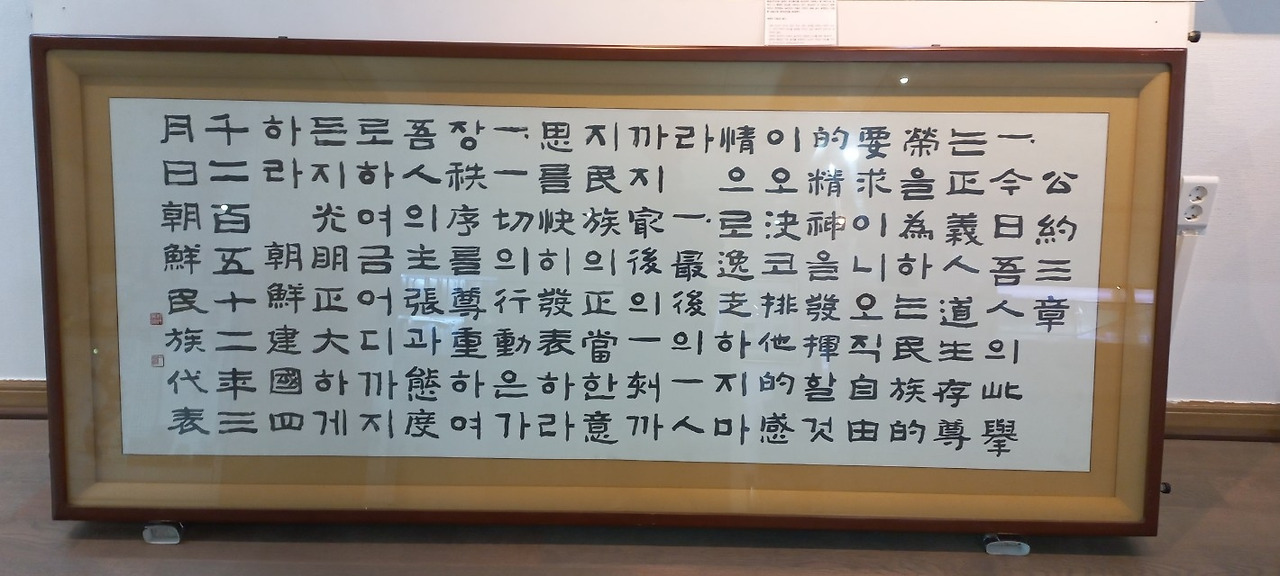 公約三章
一.今日吾人의此擧
는正義人道生存尊
榮을為하는民族的
要求이니오직自由
的精神을發揮할것
이오決코排他的感
情으로逸走하지마
라 一.最後의一人
까지㝡後의一刻까
지民族의正當한意
思를快히發表하라
一.一切의行動은가
장秩序를尊重하여
吾人의主張과態度
로하여금어디까지
든지光明正大하게
하라 朝鮮建國四
千二百五十二年三
月日朝鮮民族代表